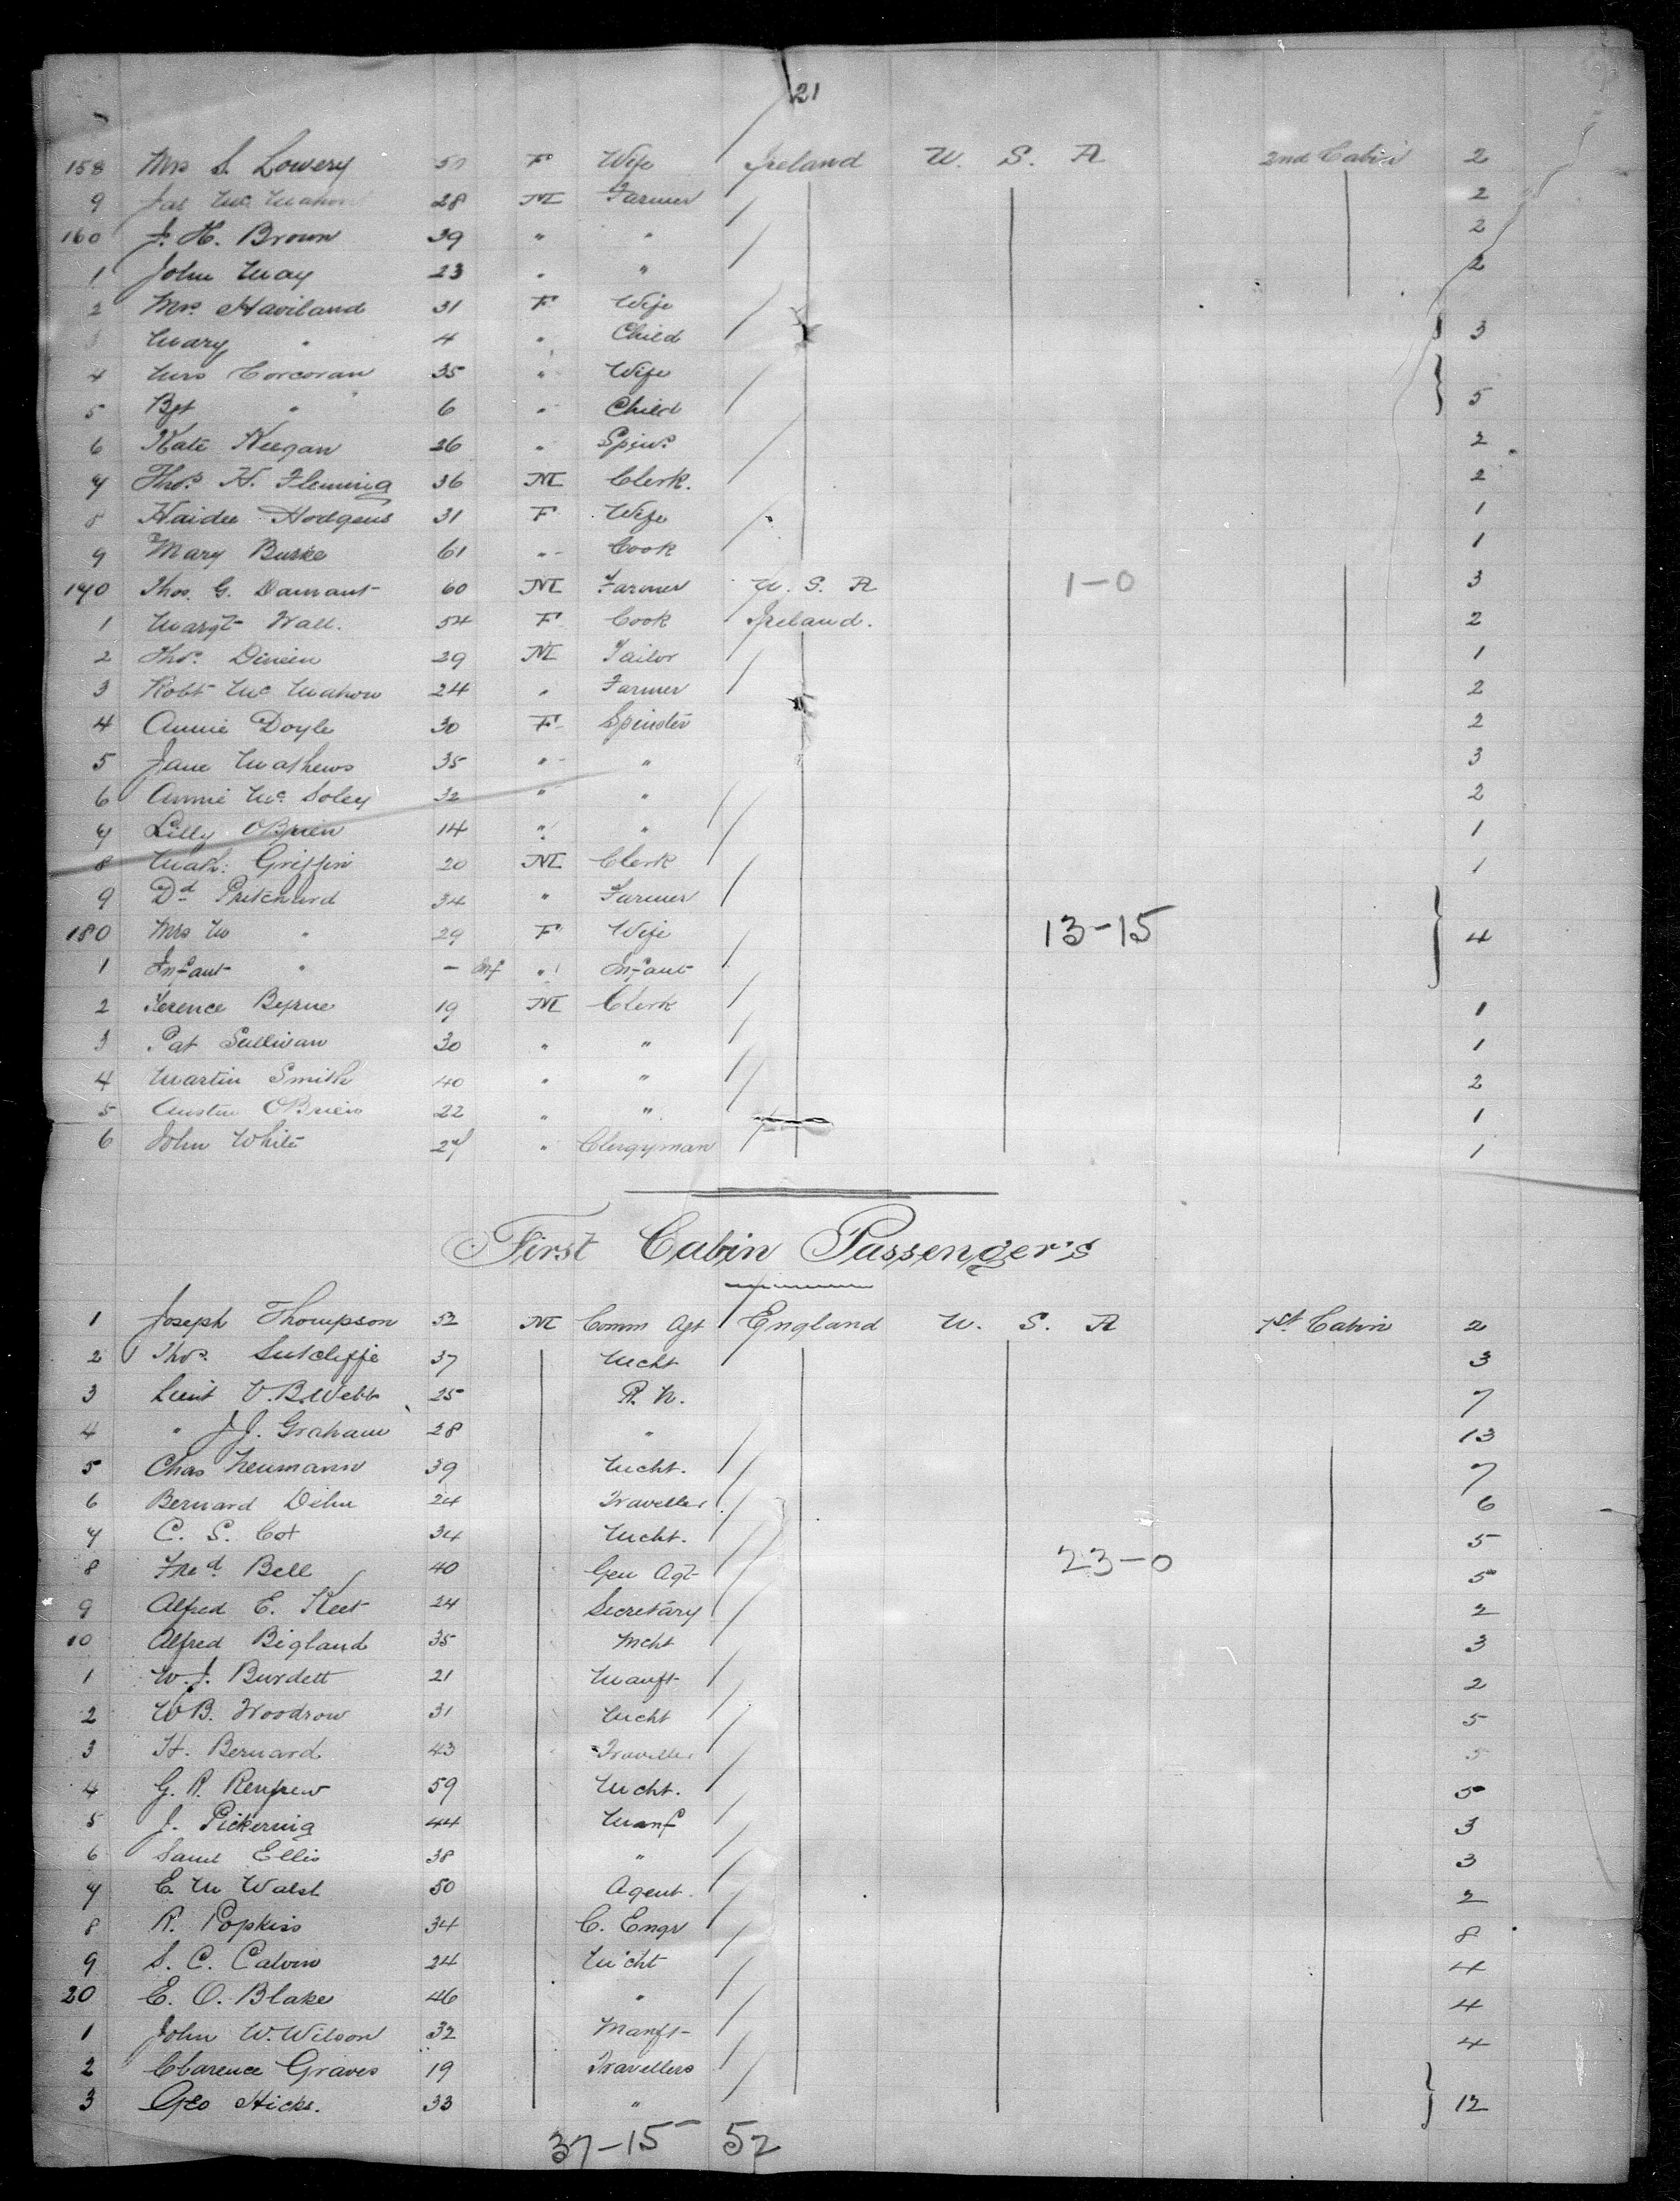 21
158 Mrs S. Lowery 50 F Wife Ireland U. S. A 2nd Cabin 2
9 Jas Mc Mahon 28 M Farmer 2
160 J. H. Brown 39 " " 2
1 John May 23 " " 2
2 Mrs. Haviland 31 F Wife
3 Mary " 4 " Child } 3
4 Mrs Corcoran 35 " Wife
5 Bgt " 6 " Child } 5
6 Kate Keegan 26 " Spinr. 2
7 Thos. H. Fleming 36 M Clerk. 2
8 Haidee Hodgens 31 F Wife 1
9 Mary Burke 61 " Cook 1
170 Thos. G. Damant 60 M Farmer U. S. A 1-0 3
1 Margt Wall. 54 F Cook Ireland. 2
2 Thos. Dineen 29 M Tailor 1
3 Robt Mc Mahon 24 " Farmer 2
4 Annie Doyle 30 F Spinster 2
5 Jane Mathews 35 " " 3
6 Annie Mc Soley 32 " " 2
7 Lilly OBrien 14 " " 1
8 Math: Griffin 20 M Clerk 1
9 Dd Pritchard 34 " Farmer
180 Mrs M " 29 F Wife 13-15 } 4
1 Infant " - Inf " Infant
2 Terence Byrne 19 M Clerk 1
3 Pat Sullivan 30 " " 1
4 Martin Smith 40 " " 2
5 Austin OBrien 22 " " 1
6 John White 27 " Clergyman 1
First Cabin Passengers
1 Joseph Thompson 52 M Comm Agt England U. S. A 1st Cabin 2
2 Thos. Sutcliffe 37 Mcht 3
3 Lieut V. B. Webb 25 R. N. 7
4 " J J. Graham 28 " 13
5 Chas Neumann 39 Mcht. 7
6 Bernard Dehn 24 Traveller 6
7 C. S. Cox 34 Mcht. 5
8 Fred. Bell 40 Gen Agt 23-0 5
9 Alfred E. Keet 24 Secretary 2
10 Alfred Bigland 35 Mcht 3
1 W. J. Burdett 21 Manft 2
2 W B. Woodrow 31 Mcht 5
3 H. Bernard 43 Traveller 5
4 G. R. Renfrew 59 Mcht. 5
5 J. Pickering 44 Manf 3
6 Saml Ellis 38 " 3
7 E. M Walsh 50 Agent. 2
8 R. Popkiss 34 C. Engr 8
9 S. C. Calvin 24 Mcht 4
20 E. O. Blake 46 " 4
1 John W. Wilson 32 Manft 4
2 Clarence Graves 19 Travellers
3 Geo Hicks. 33 " } 12
37-15 52